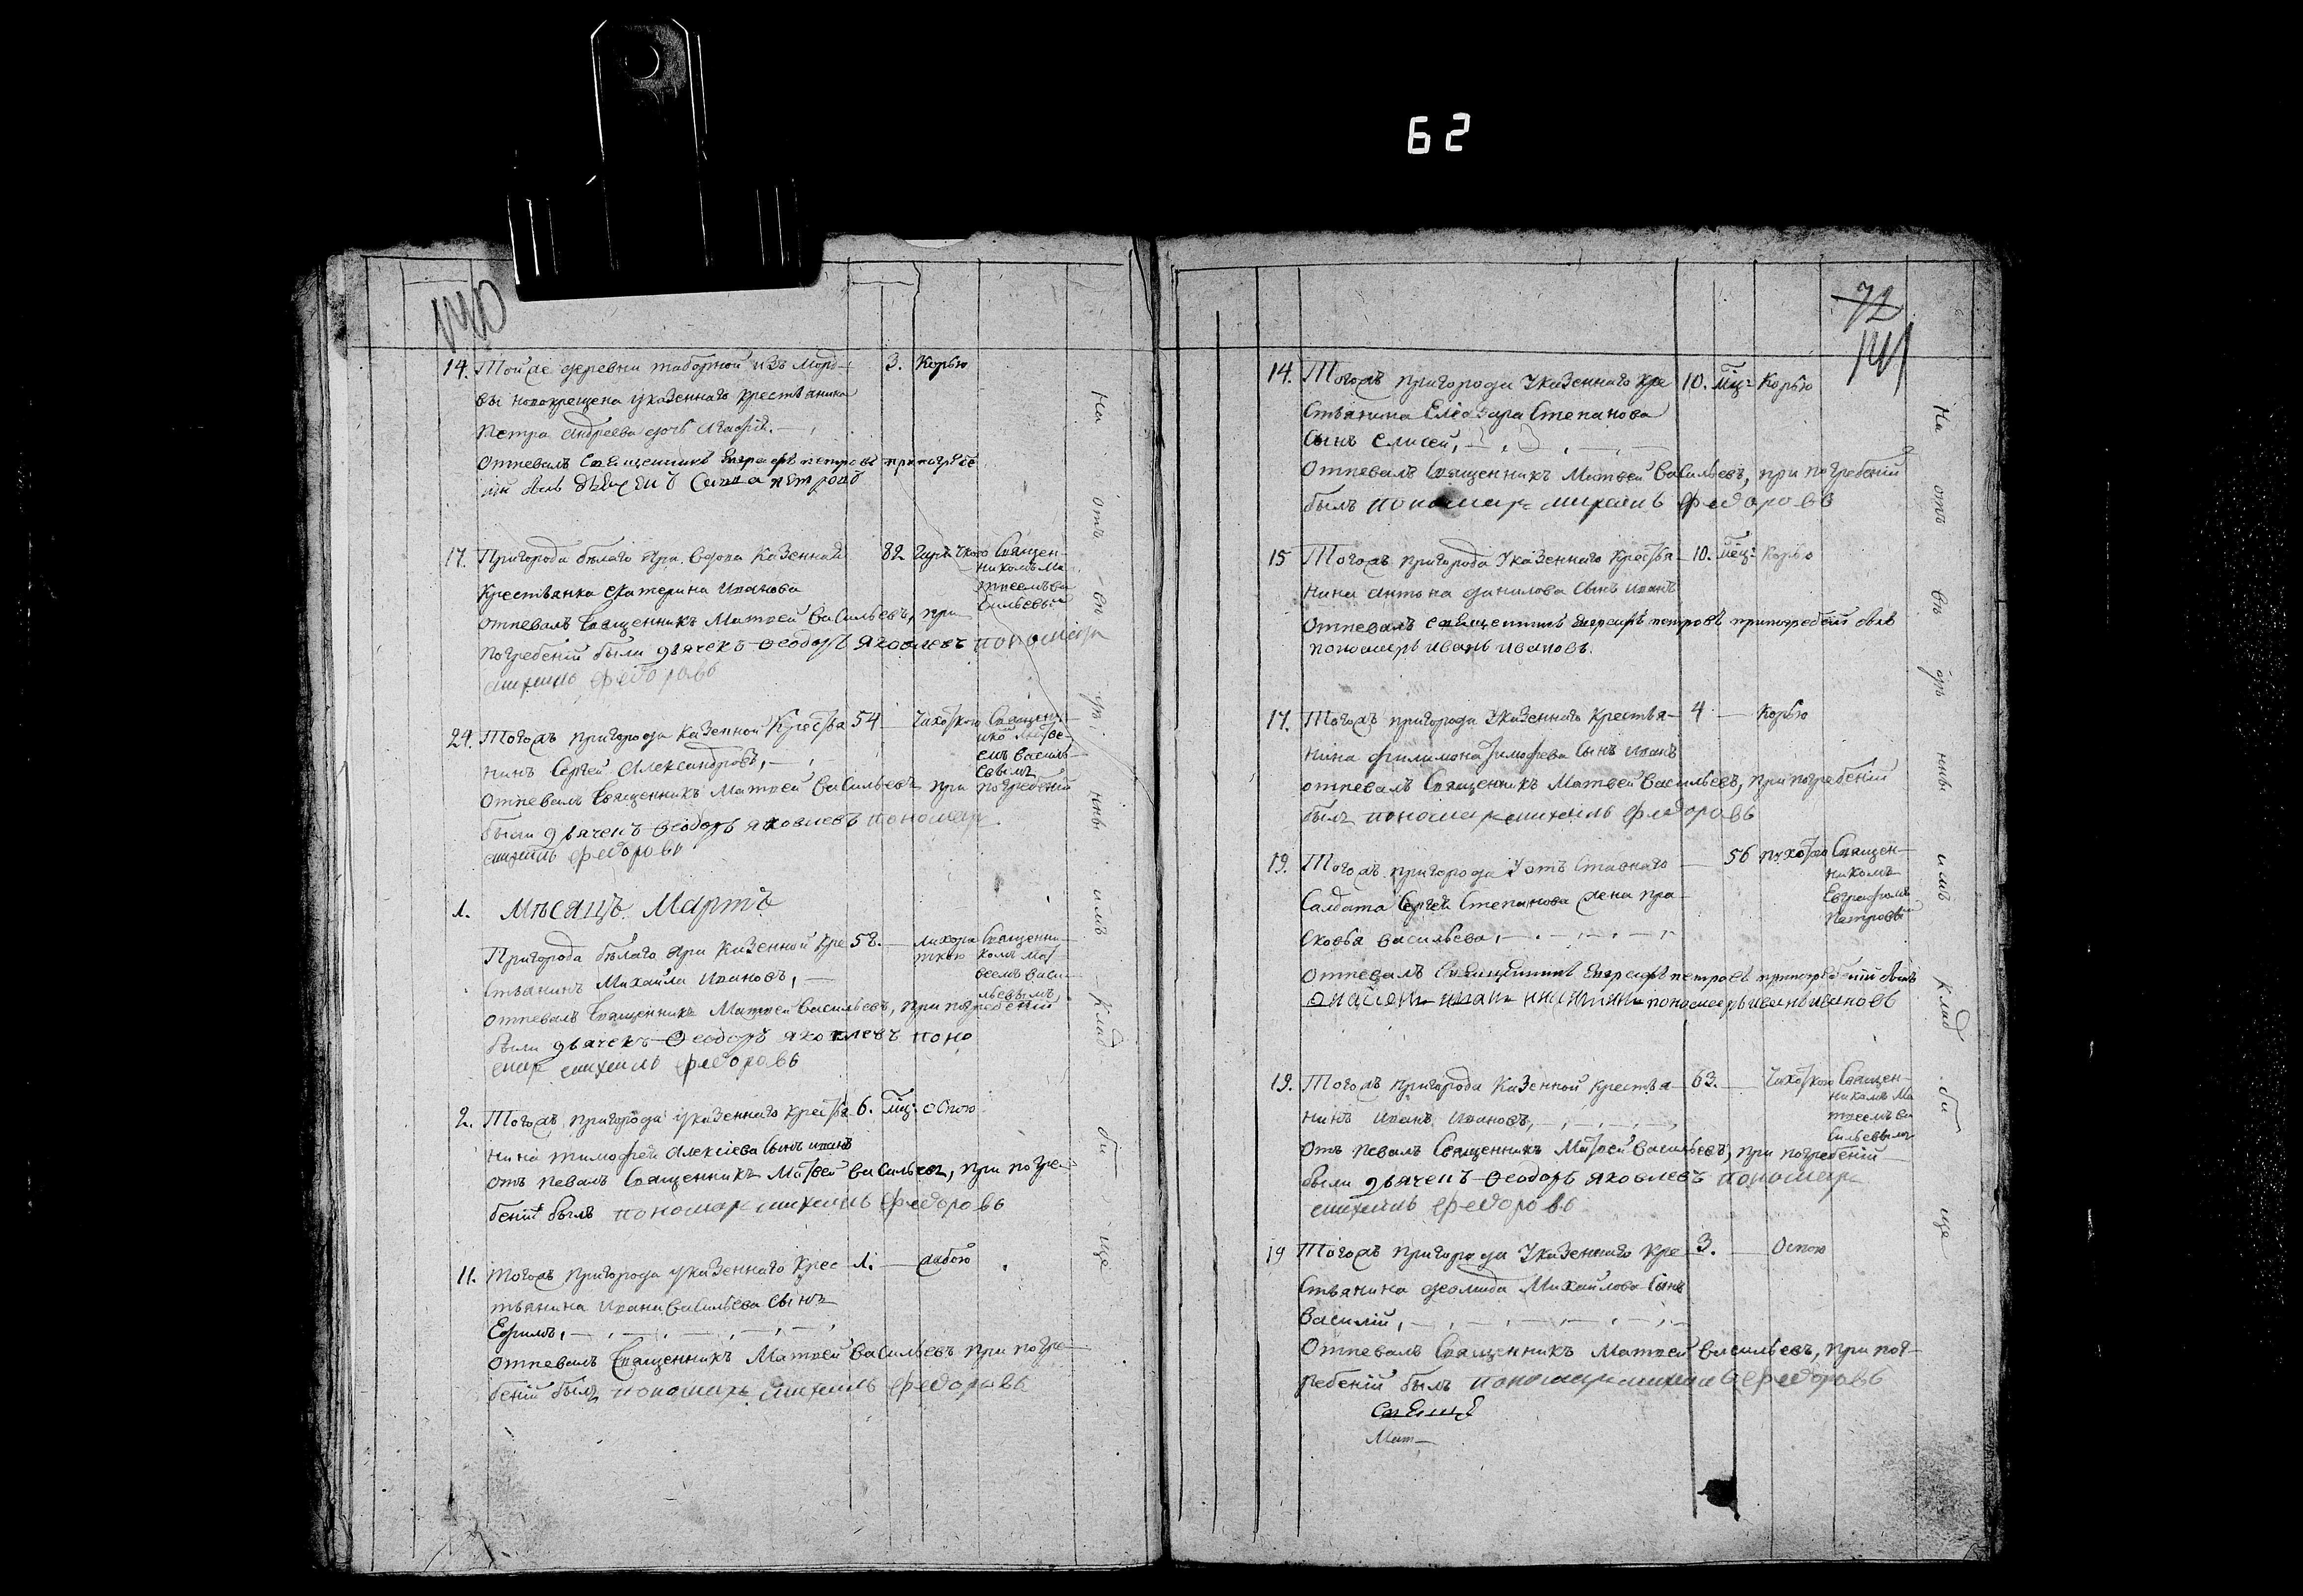 62
140
14. Той же деревни таборной изъ Морд-
вы новокрещена указеннаго крестьянина
Петра Андреева дочь Агафія.
3. Корью
Отпевалъ Священникъ Евграфъ петровъ при погребе
ніи былъ
17. Пригорода белаго Яра вдова Казенная
Крестьянка Екатерина Иванова
82
Священ-
никомъ Ма
тфеемъ Ва
сильевы
отпевалъ Священникъ Матвей Васильевъ, при
погребеній были дьячекъ Ѳеодоръ Яковлевъ пономарь
михаилъ федоровъ
24. Тогожъ пригорода казенной Крестья
нинъ Сергей Александровъ,
54
Чахоткою
Священ-
ико Матве-
емъ Василь-
евымъ
отпевалъ Священникъ Матвей Васильевъ при погребеній
были дьячекъ Ѳеодоръ яковлевъ пономарь
михаилъ федоровъ
1. Месяцъ Мартъ
Пригорода белаго Яра Казенной Кре
стьянинъ Михайла Ивановъ,
58.
лихора
ткою
Священни-
комъ Мат
веемъ Васи-
льевымъ
отпевалъ Священникъ Матвей Васильевъ, при погребеній
были дьячекъ Ѳеодоръ яковлевъ поно
марь михаилъ федоровъ
2. Тогожъ пригорода указеннаго крестья
нина тимофей Алексіева Сынъ иванъ
6. мц: оспою
отъ певалъ Священникъ Матвей Васильевъ, при погре-
беній былъ пономарь михаилъ федоровъ
11. тогожъ пригорода указеннаго Крес
тьянина Ивана Васильева сынъ
Ефимъ,
1. жабою
отпевалъ Священникъ Матвей Васильевъ при погре-
беній былъ пономарь михаилъ федоровъ
На отъ ве де ннымъ клад би ще
72
141
14. Тогожъ пригорода Указеннаго Кре
стьянина Еліазара Степанова
Сынъ Елисей,
10. мц: Корью
Отпевалъ Священникъ Матвей Васильевъ, при погребеній
былъ пономарь михаилъ федоровъ
15 Тогожъ пригорода Указеннаго Крестья
нина Антона данилова Сынъ иванъ
10. мц: Корью
отпевалъ священникъ Евграфъ петровъ припогребеніи былъ
пономарь иванъ ивановъ.
17. Тогожъ пригорода Указеннаго Крестья-
нина Филимона Тимофева Сынъ иванъ
4 Корью
отпевалъ Священникъ Матвей Васильевъ, при погребеній
былъ пономарь михаилъ федоровъ
19. Тогожъ пригорода Уотъ Ставнаго
Салдата Сергея Степанова жена пра-
сковья васильева,
56
Священ-
никомъ
Евграфомъ
Петровы
Отпевалъ Священникъ Евграфъ петровъ припогребеніи былъ
пономарь иванъ ивановъ
19. Тогожъ пригорода Казенной крестья
нинъ Иванъ Ивановъ,
63.
Чахоткою
Священ-
никамъ Ма
тфеемъ Ва
сильевымъ
отъ певалъ Священникъ Матвей Васильевъ, при погребеній
были дьячекъ Ѳеодоръ яковлевъ пономарь
михаилъ федоровъ
19 Тогожъ пригорода Указеннаго Кре
стьянина Михайлова Сынъ
Василій,
3. Оспою
Отпевалъ Священникъ Матвей Васильевъ, при пог-
ребеній былъ пономарь михаилъ федоровъ
Мат